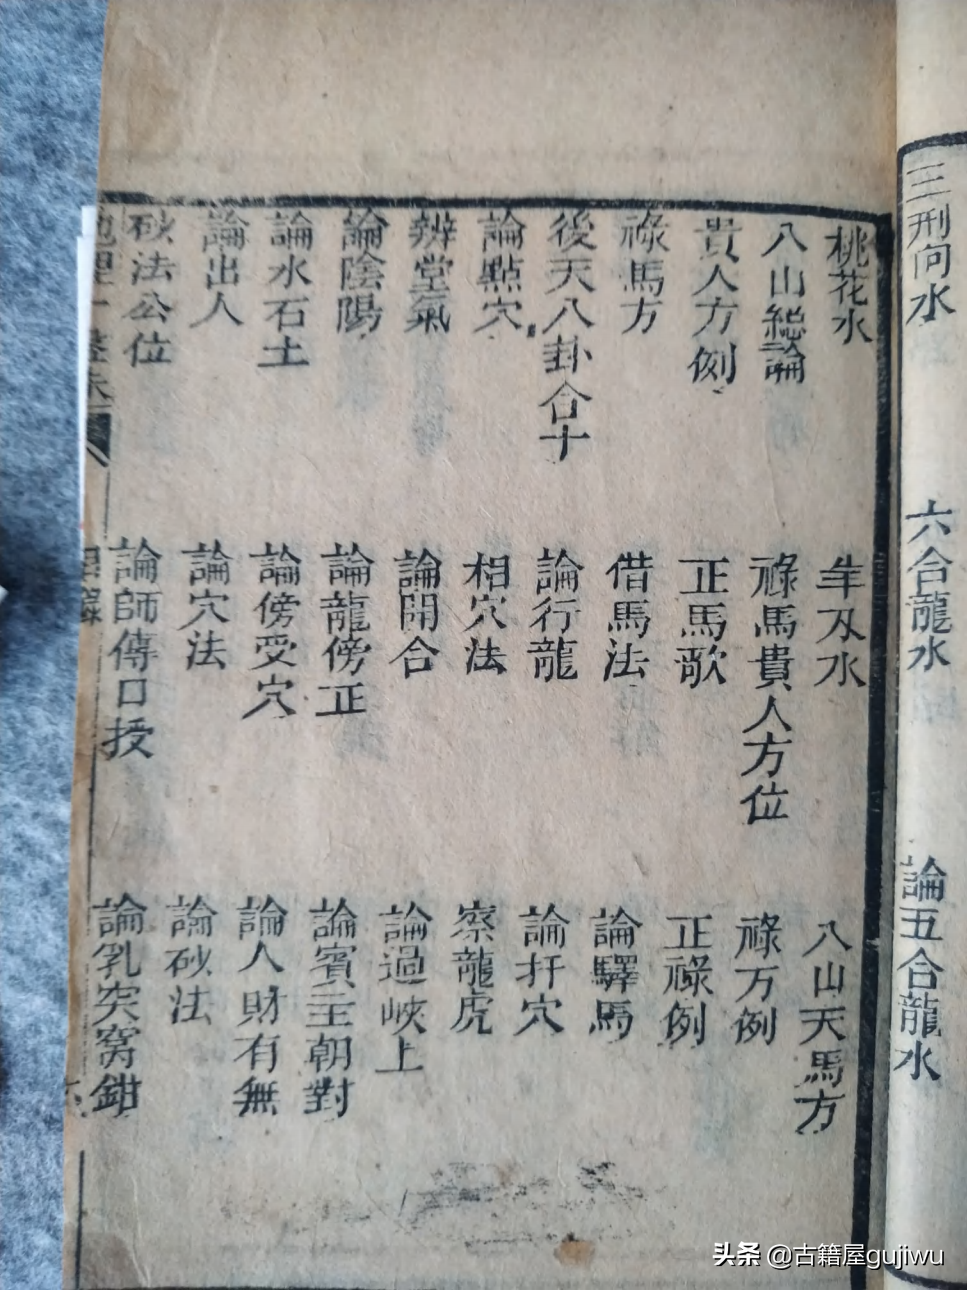 三刑向水
六合龍水
論五合龍水
桃花水
羊刃水
八山天馬方
八山総論
祿馬貴人方位
祿方例
貴人方例
正馬歌
正祿例
祿馬方
借馬法
論驛馬
後天八卦合十
論行龍
論扞穴
論點穴
相穴法
察龍虎
辨堂氣
論開合
論過峽上
論陰陽
論龍傍正
論賓主朝對
論水石土
論傍受穴
論人財有無
論出人
論穴法
論砂法
砂法公位
論師傳口授
論乳突窩鉗
地理
頭条 @古籍屋gujiwu